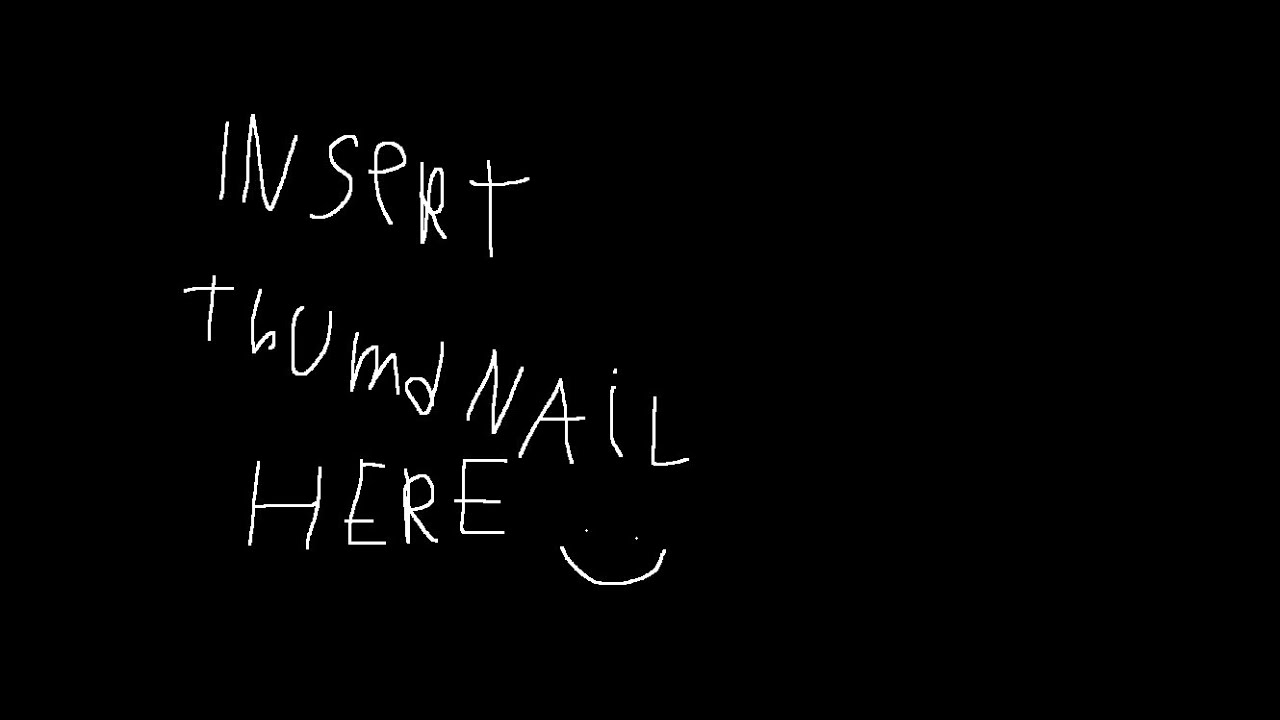 INSeRT
thUmdNAiL
HERE